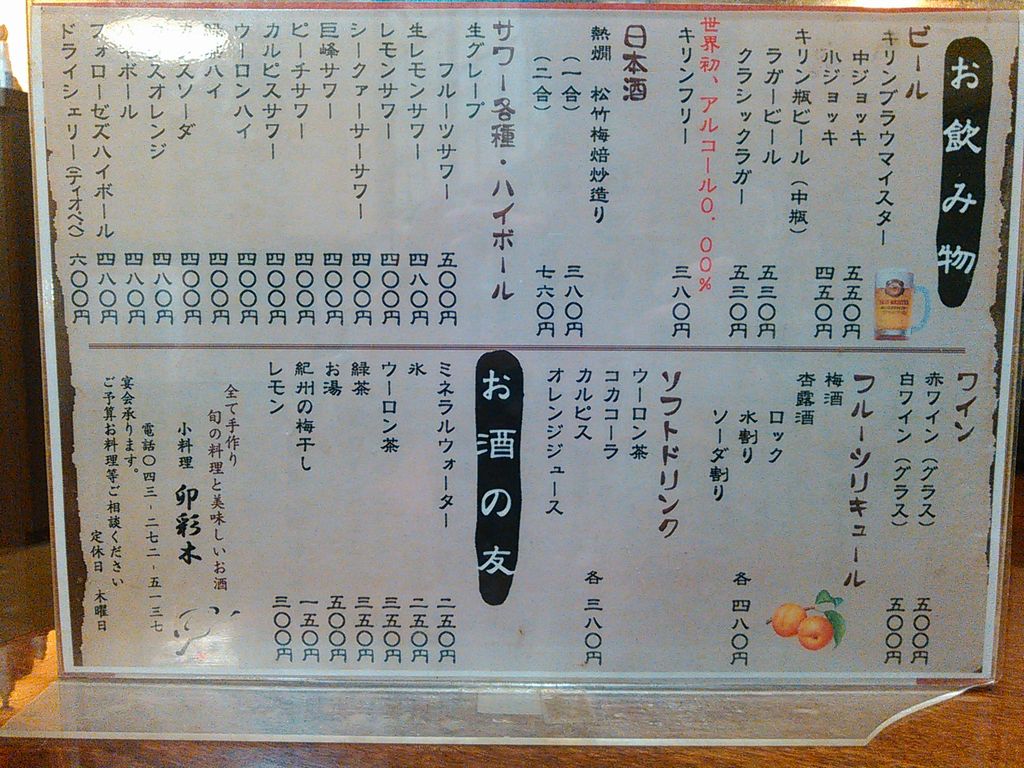 お飲み物
ビール
キリンブラウマイスター
中ジョッキ 五五〇円
小ジョッキ 四五〇円
キリン瓶ビール（中瓶）
ラガービール 五三〇円
クラシックラガー 五三〇円
世界初、アルコール０．００％
キリンフリー 三八〇円
日本酒
熱燗 松竹梅焙炒造り
（一合） 三八〇円
（二合） 七六〇円
サワー各種・ハイボール
生グレープ
フルーツサワー 五〇〇円
生レモンサワー 四八〇円
レモンサワー 四〇〇円
シークァーサーサワー 四〇〇円
巨峰サワー 四〇〇円
ピーチサワー 四〇〇円
カルピスサワー 四〇〇円
ウーロンハイ 四〇〇円
ハイ 四〇〇円
スソーダ 四八〇円
スオレンジ 四八〇円
ボール 四八〇円
フォローゼズハイボール 四八〇円
ドライシェリー（ティオペペ） 六〇〇円
ワイン
赤ワイン（グラス） 五〇〇円
白ワイン（グラス） 五〇〇円
フルーツリキュール
梅酒
杏露酒
ロック
水割り 各 四八〇円
ソーダ割り
ソフトドリンク
ウーロン茶
コカコーラ 各 三八〇円
カルピス
オレンジジュース
お酒の友
ミネラルウォーター 二五〇円
氷 二五〇円
ウーロン茶 三五〇円
緑茶 三五〇円
お湯 五〇〇円
紀州の梅干し 一五〇円
レモン 三〇〇円
全て手作り
旬の料理と美味しいお酒
小料理 卯彩木
電話〇四三-二七二-五一三七
宴会承ります。
ご予算お料理等ご相談ください
定休日 木曜日